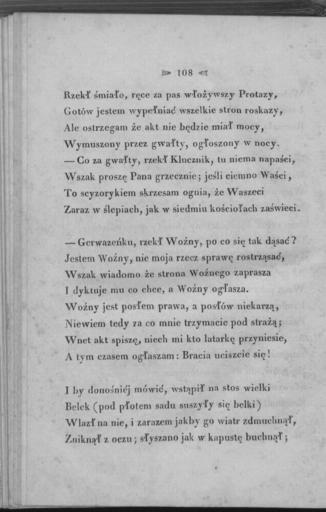 108
Rzekł śmiało, ręce za pas włożywszy Protazy,
Gotów jestem wypełniać wszelkie stron roskazy,
Ale ostrzegam że akt nie będzie miał mocy,
Wymuszony przez gwałty, ogłoszony w nocy.
— Co za gwałty, rzekł Klucznik, tu niema napaści,
Wszak proszę Pana grzecznie; jeśli ciemno Waści,
To scyzorykiem skrzesam ognia, że Waszeci
Zaraz w ślepiach, jak w siedmiu kościołach zaświeci.
— Gerwazeńku, rzekł Woźny, po co się tak dąsać?
Jestem Woźny, nie moja rzecz sprawę rostrząsać,
Wszak wiadomo że strona Woźnego zaprasza
I dyktuje mu co chce, a Woźny ogłasza.
Woźny jest posłem prawa, a posłów niekarzą,
Niewiem tedy za co mnie trzymacie pod strażą;
Wnet akt spiszę, niech mi kto latarkę przyniesie,
A tym czasem ogłaszam: Bracia uciszcie się!
I by donośniéj mówić, wstąpił na stos wielki
Belek (pod płotem sadu suszyły się belki)
Wlazł na nie, i zarazem jakby go wiatr zdmuchnął,
Zniknął z oczu; słyszano jak w kapustę buchnął;